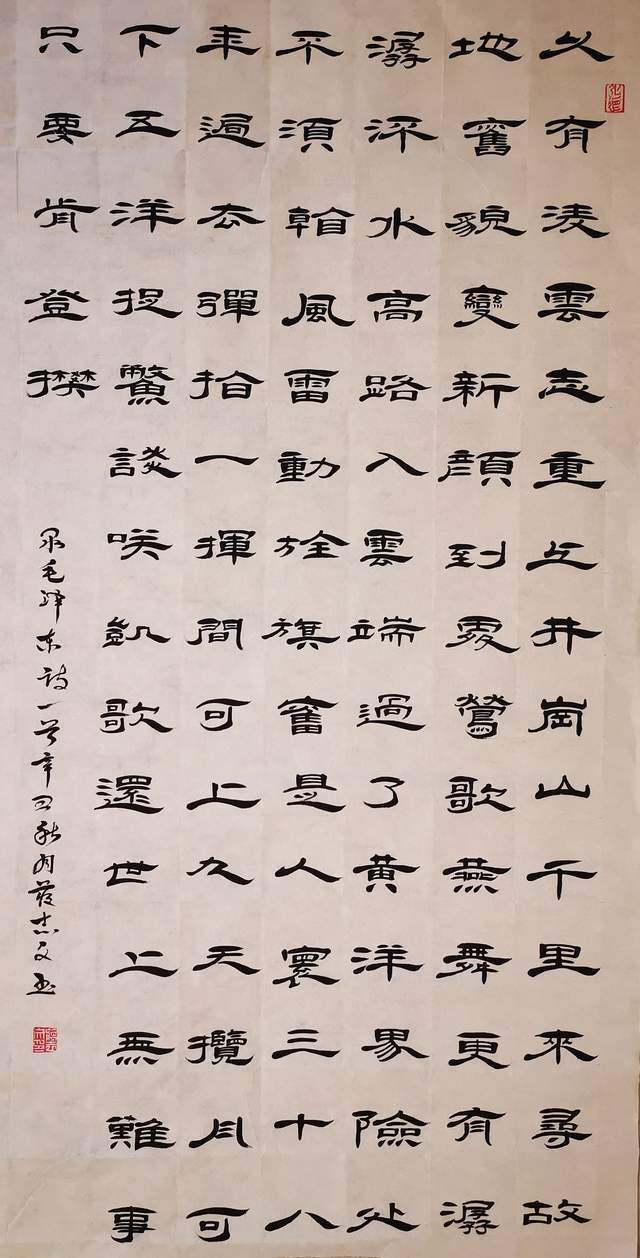 久有凌雲志重上井崗山千里來尋故
地舊貌變新顔到處鶯歌燕舞更有潺
潺深水高路入雲端過了黄洋界險处
不須看風雷動旌旗奮是人寰三十八
年過去彈指一揮間可上九天攬月可
下五洋捉鱉談咲凱歌還世上無難事
只要肯登攀
录毛泽东诗一首辛丑秋月志文书